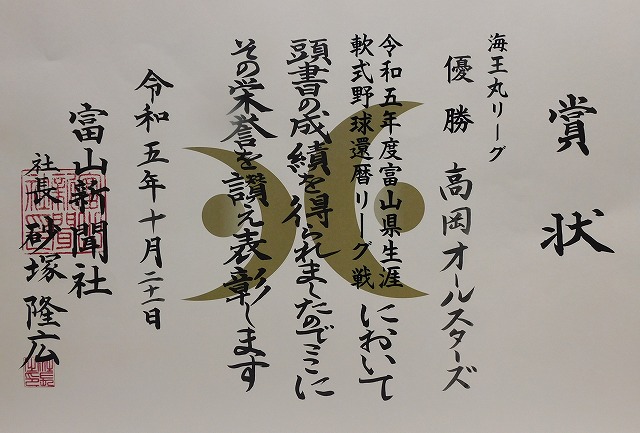 賞状
海王丸リーグ
優勝 高岡オールスターズ
令和五年度富山県生涯
軟式野球還暦リーグ戦において
頭書の成績を得られましたのでここに
その栄誉を讃え表彰します
令和五年十月二十一日
富山新聞社
社長 砂塚隆広